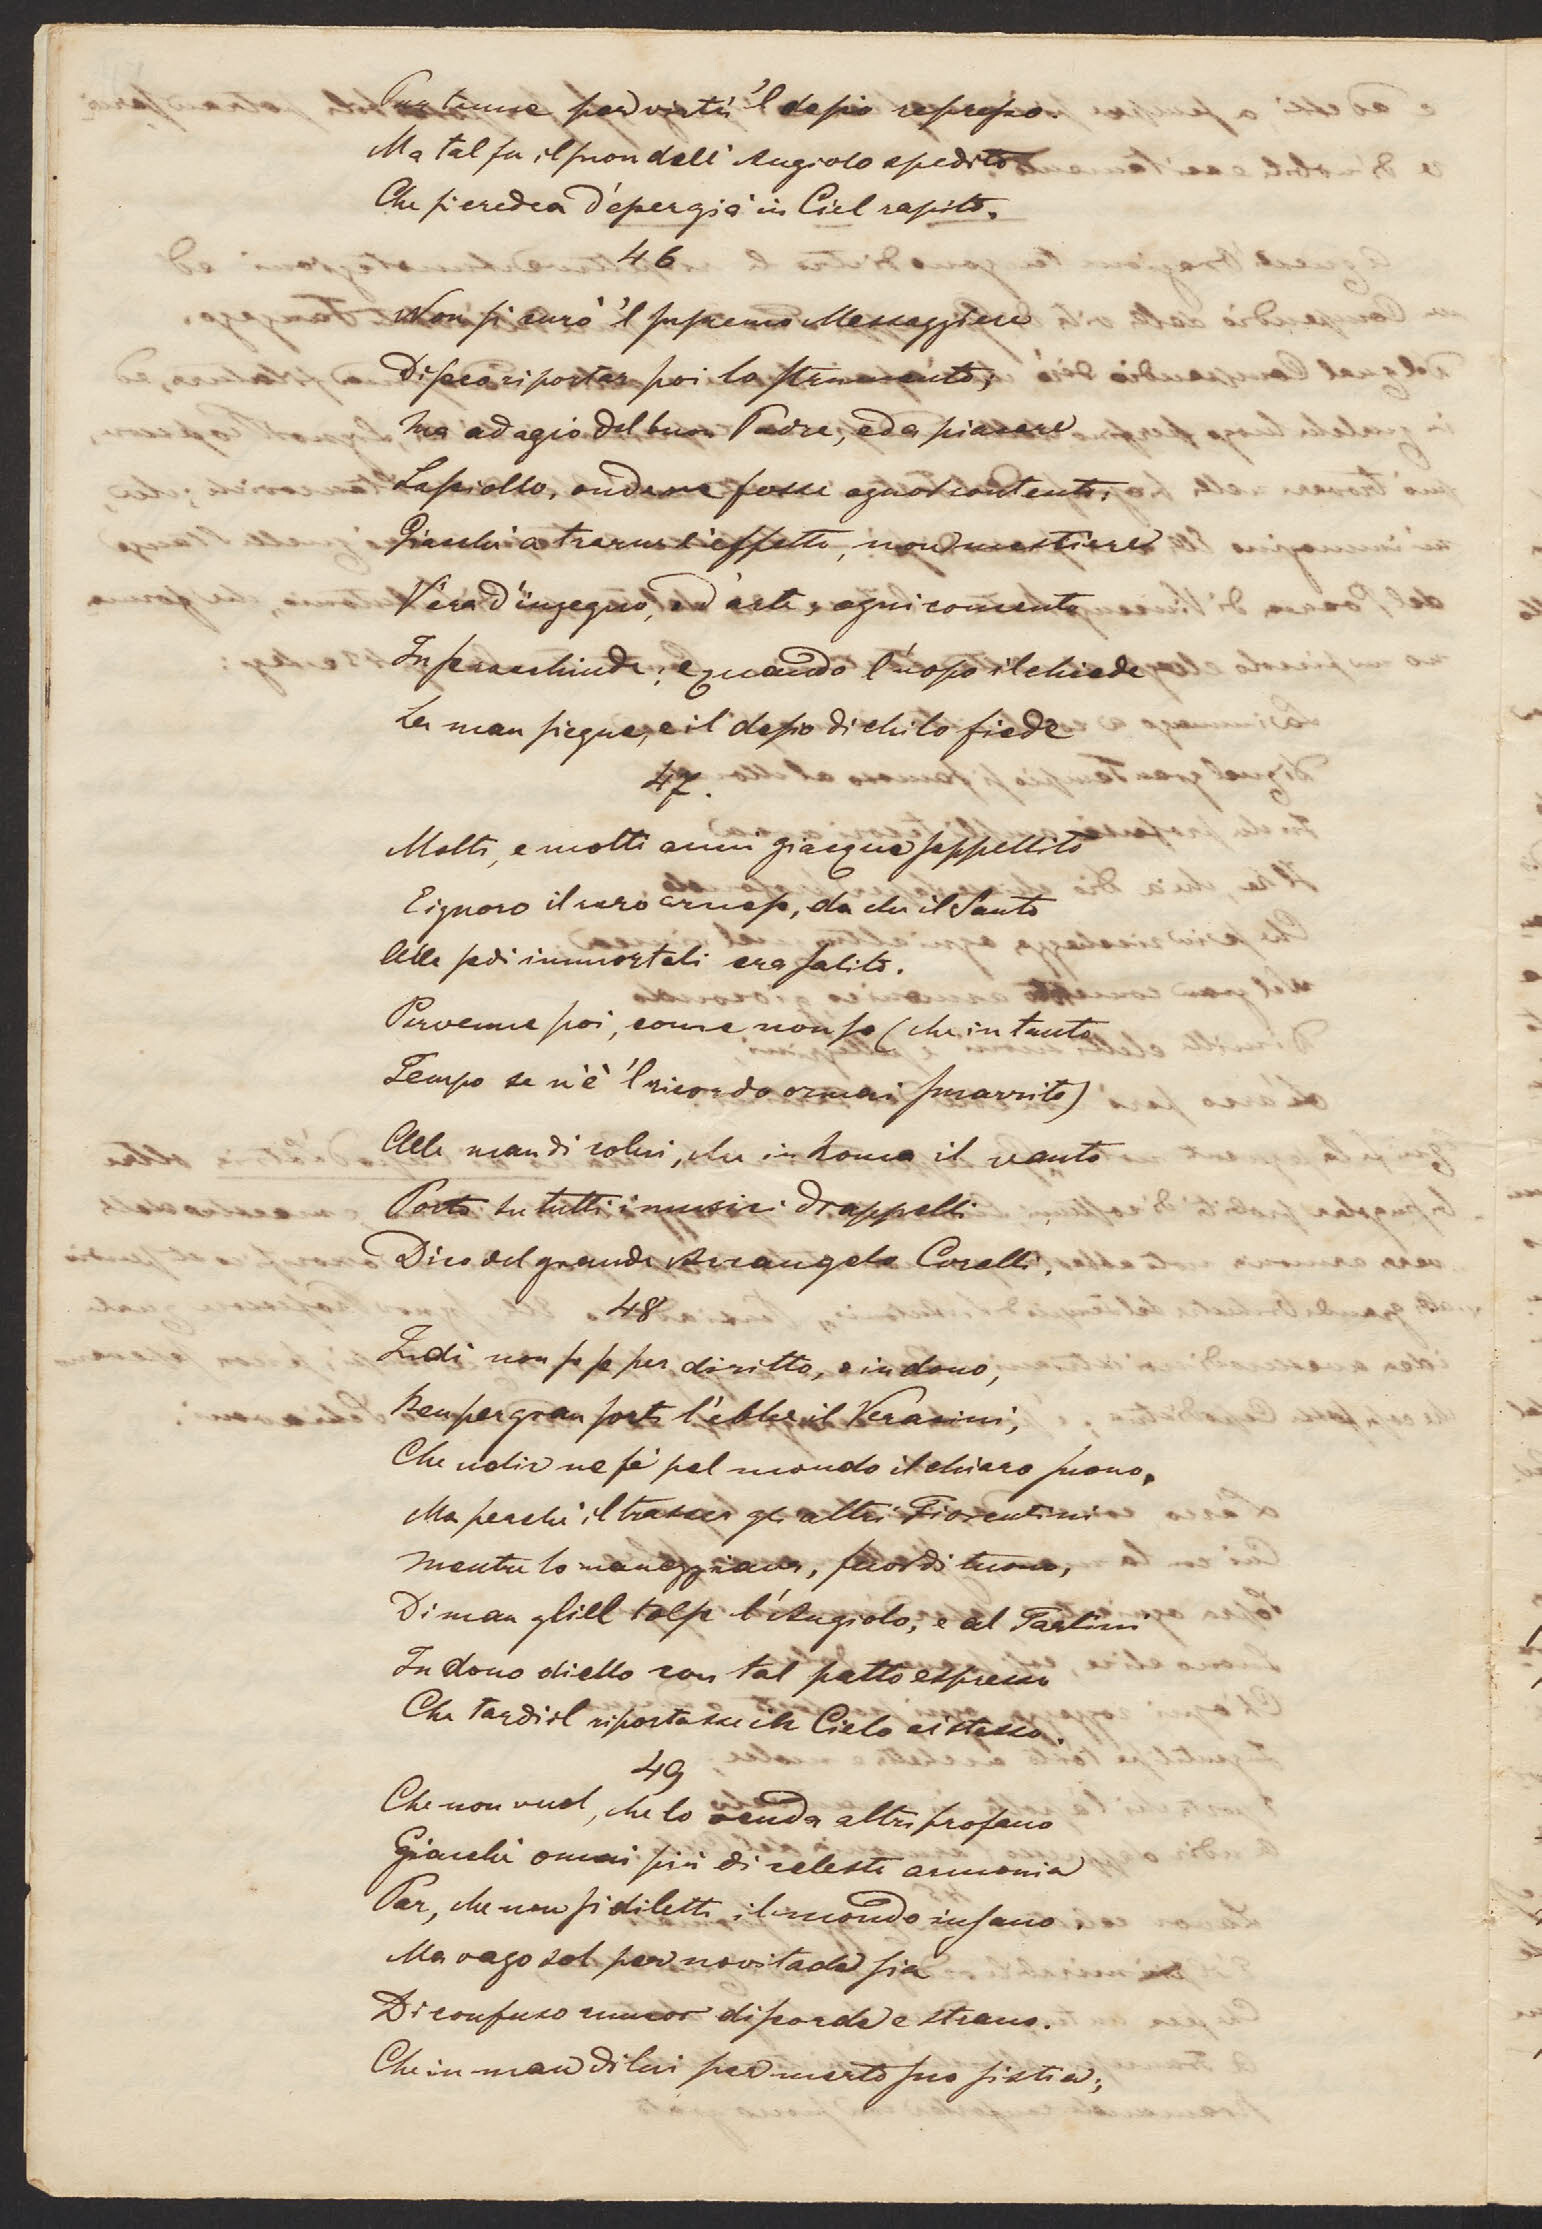 Pur tenne per virtù 'l desio represso.
Ma tal fu il suon dell' Angiolo spedito
Che si credea d'esser già in Ciel rapito.
46
Non si curò 'l supremo Messaggiere
Di seco riportar poi lo strumento;
ma ad agio del buon Padre, ed a piacere
Lasciollo, onde ne fosse ognor contento;
Giacchè a trarne l'effetto, non mestiere
V'era d'ingegno, o d'arte, ogni concento
In se racchiude; e quando l'uopo il chiede
La man siegue, e il desio di chi lo fiede
47.
Molti, e molti anni giacque seppellito
E ignoto il raro arnese, da che il Santo
Alle sedi immortali era salito.
Pervenne poi, come non so (che in tanto
Tempo se n'è 'l ricordo ormai smarrito)
Alle man di colui, che in Roma il vanto
Portò su tutti i musici drappelli
Dico del grande Arcangelo Corelli.
48
Indi non so se per diritto, o in dono,
Ben per gran sorte l'ebbe il Veracini,
Che udir ne fè pel mondo il chiaro suono.
Ma perchè il trasser gli altri Fiorentini
mentre lo maneggiava, fuor di tuono,
Di man gliel tolse l'Angiolo; e al Tartini
In dono diello con tal patto espresso
Che tardi il riportasse in Cielo ei stesso.
49
Che non vuol, che lo renda altri profano
Giacchè omai più di celeste armonia
Par, che non si diletti il mondo insano
Ma vago sol per novitade sia
Di confuso rumor discorde e strano.
Che in man di lui per merto suo si stia;